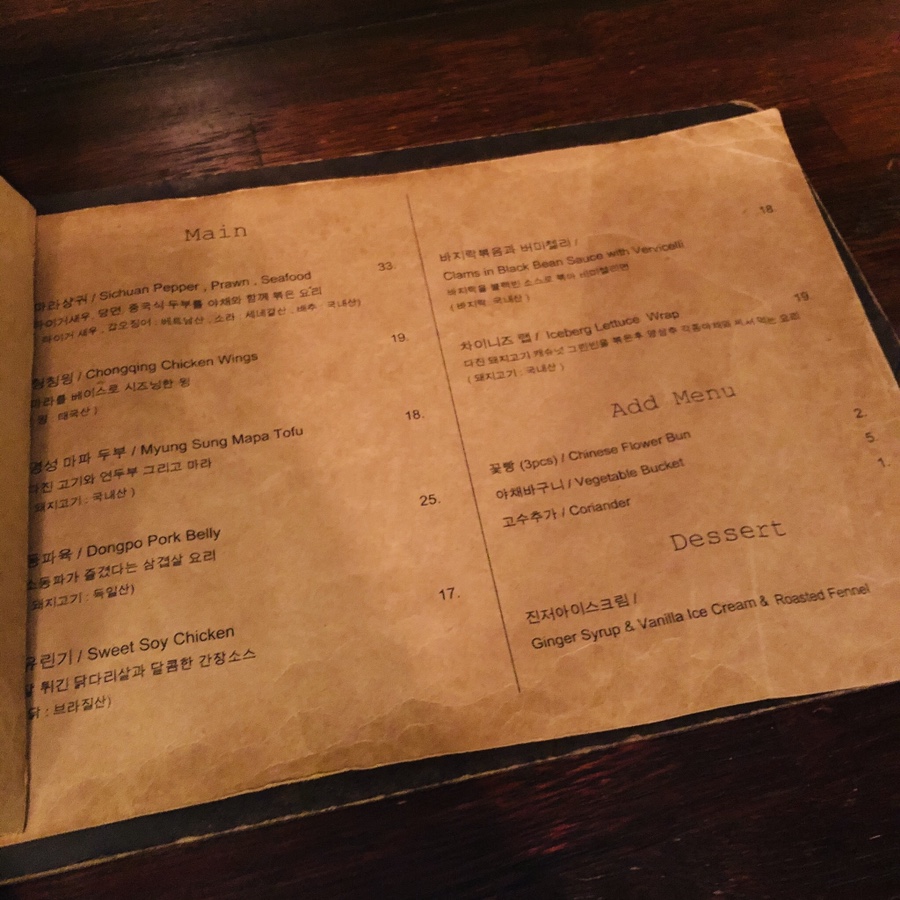 Main
33.
마라샹궈 / Sichuan Pepper , Prawn , Seafood
타이거새우, 당면, 중국식두부를 야채와 함께 볶은 요리
타이거 새우 , 갑오징어 : 베트남산 , 소라 : 세네갈산 , 배추 : 국내산)
19.
칭윙 / Chongqing Chicken Wings
마라를 베이스로 시즈닝한 윙
윙 : 태국산 )
18.
명성 마파 두부 / Myung Sung Mapa Tofu
다진 고기와 연두부 그리고 마라
돼지고기 : 국내산 )
25.
동파육 / Dongpo Pork Belly
소동파가 즐겼다는 삼겹살 요리
돼지고기 : 독일산)
17.
유린기 / Sweet Soy Chicken
튀긴 닭다리살과 달콤한 간장소스
닭 : 브라질산)
18.
바지락볶음과 버미첼리 /
Clams in Black Bean Sauce with Vervicelli
바지락을 블랙빈 소스로 볶아 버미첼리면
( 바지락 : 국내산 )
19.
차이니즈 랩 / Iceberg Lettuce Wrap
다진 돼지고기 캐슈넛 그린빈을 볶은후 양상추 각종야채와 싸서 먹는 요리
( 돼지고기 : 국내산 )
Add Menu
꽃빵 (3pcs) / Chinese Flower Bun 2.
야채바구니 / Vegetable Bucket 5.
고수추가 / Coriander 1.
Dessert
진저아이스크림 /
Ginger Syrup & Vanilla Ice Cream & Roasted Fennel